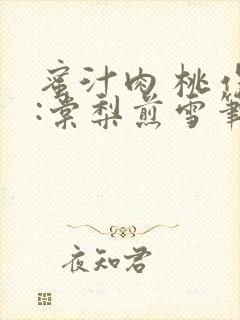 蜜汁肉桃
:棠梨煎雪筆
夜知君